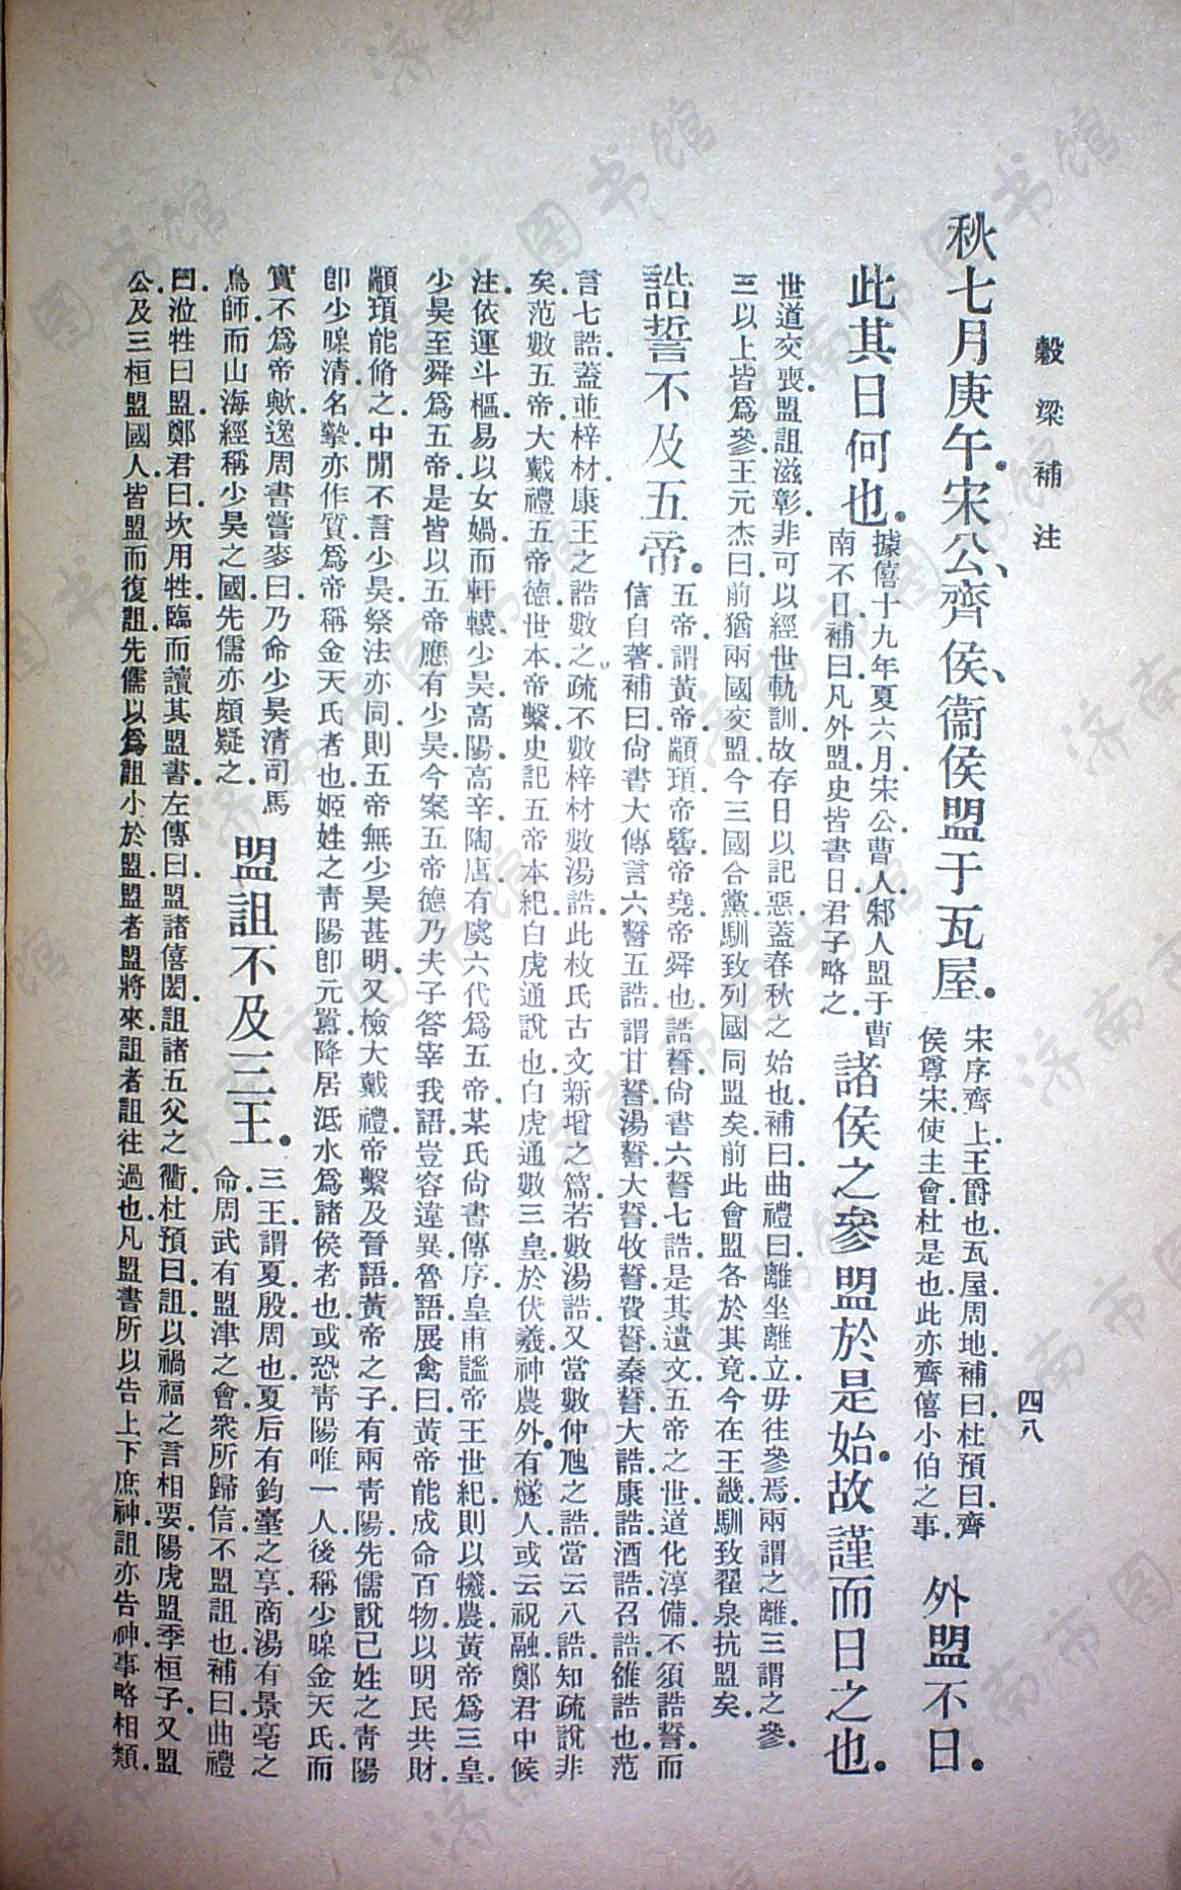 穀梁補注
四八
秋七月庚午.宋公、齊侯、衞侯盟于瓦屋.
宋序齊上.王爵也.瓦屋.周地.補曰.杜預曰.齊
侯尊宋.使主會.杜是也.此亦齊僖小伯之事.
外盟不日.
此其日何也.
據僖十九年夏六月.宋公.曹人.邾人盟于曹
南.不日.補曰.凡外盟.史皆書日.君子略之.
諸侯之參盟於是始.故謹而日之也.
世道交喪.盟詛滋彰.非可以經世軌訓.故存日以記惡.蓋春秋之始也.補曰.曲禮曰.離坐離立.毋往參焉.兩謂之離.三謂之參.
三以上皆爲參.王元杰曰.前猶兩國交盟.今三國合黨.馴致列國同盟矣.前此會盟.各於其竟.今在王畿.馴致翟泉抗盟矣.
誥誓不及五帝.
五帝.謂黃帝.顓頊.帝嚳.帝堯.帝舜也.誥誓.尙書六誓七誥.是其遺文.五帝之世.道化淳備.不須誥誓.而
信自著.補曰.尙書大傳言六誓五誥.謂甘誓.湯誓.大誓.牧誓.費誓.秦誓.大誥.康誥.酒誥.召誥.雒誥也.范
言七誥.蓋並梓材.康王之誥數之.疏不數梓材.數湯誥.此枚氏古文新增之篇.若數湯誥.又當數仲虺之誥.當云八誥.知疏說非
矣.范數五帝.大戴禮五帝德.世本.帝繫.史記五帝本紀.白虎通說也.白虎通數三皇.於伏羲神農外.有燧人.或云祝融.鄭君中候
注.依運斗樞.易以女媧.而軒轅.少昊.高陽.高辛.陶唐.有虞六代爲五帝.某氏尙書傳序.皇甫謐帝王世紀.則以犧.農.黃帝爲三皇.
少昊至舜爲五帝.是皆以五帝應有少昊.今案五帝德乃夫子答宰我語.豈容違異.魯語.展禽曰.黃帝能成命百物.以明民共財.
顓頊能脩之.中閒不言少昊.祭法亦同.則五帝無少昊甚明.又檢大戴禮.帝繫及晉語.黃帝之子.有兩青陽.先儒說已姓之青陽
卽少皞清.名摯.亦作質.爲帝稱金天氏者也.姬姓之青陽卽元囂.降居泜水爲諸侯者也.或恐青陽唯一人.後稱少皞金天氏.而
實不爲帝歟.逸周書嘗麥曰.乃命少昊清司馬
鳥師.而山海經稱少昊之國.先儒亦頗疑之.
盟詛不及三王.
三王.謂夏.殷.周也.夏后有鈞臺之享.商湯有景亳之
命.周武有盟津之會.眾所歸信.不盟詛也.補曰.曲禮
曰.涖牲曰盟.鄭君曰.坎用牲.臨而讀其盟書.左傳曰.盟諸僖閎.詛諸五父之衢.杜預曰.詛.以禍福之言相要.陽虎盟季桓子.又盟
公及三桓.盟國人.皆盟而復詛.先儒以爲詛小於盟.盟者盟將來.詛者詛往過也.凡盟書所以告上下庶神.詛亦告神.事略相類.